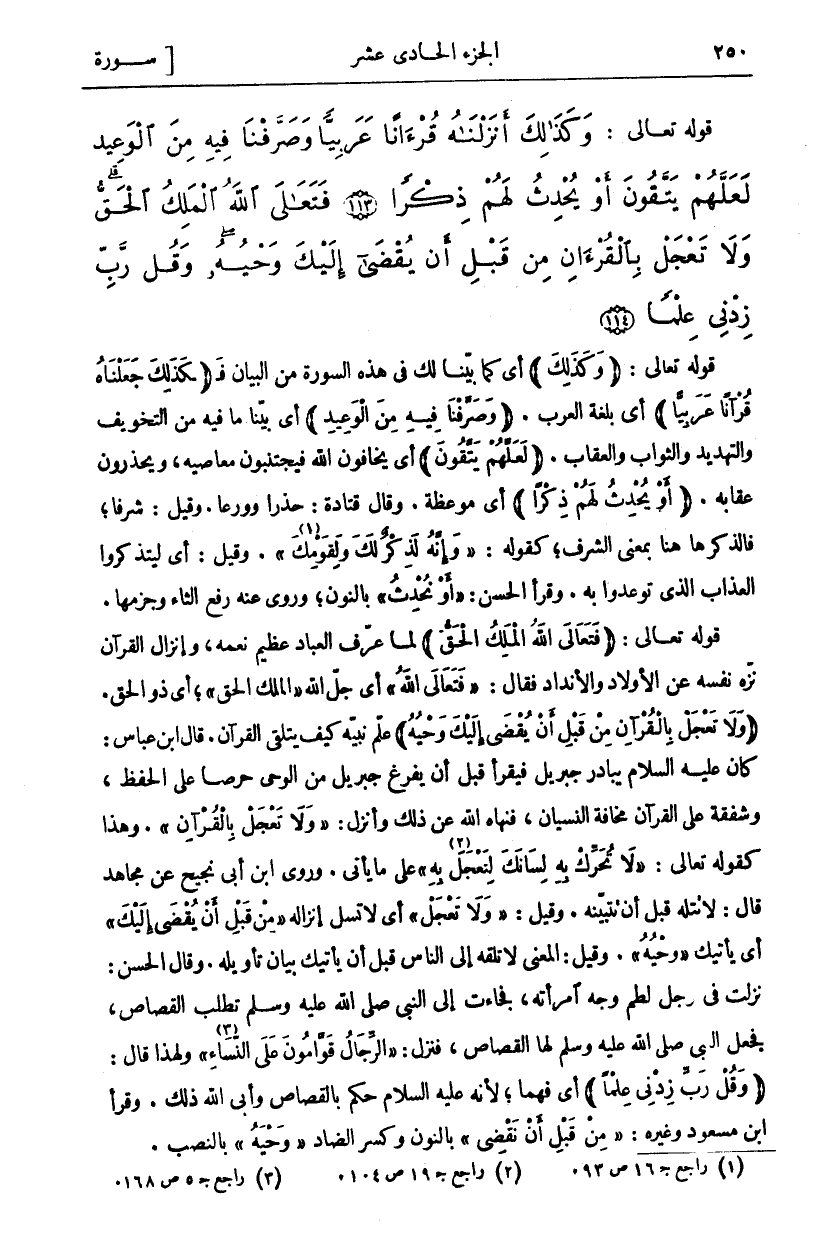 ٢٥٠ الجزء الحادى عشر [ سورة
قوله تعالى : وَكَذَٰلِكَ أَنزَلْنَٰهُ قُرْءَانًا عَرَبِيًّا وَصَرَّفْنَا فِيهِ مِنَ ٱلْوَعِيدِ
لَعَلَّهُمْ يَتَّقُونَ أَوْ يُحْدِثُ لَهُمْ ذِكْرًا ۝١١٣ فَتَعَٰلَى ٱللَّهُ ٱلْمَلِكُ ٱلْحَقُّ ۗ
وَلَا تَعْجَلْ بِٱلْقُرْءَانِ مِن قَبْلِ أَن يُقْضَىٰٓ إِلَيْكَ وَحْيُهُۥ ۖ وَقُل رَّبِّ
زِدْنِى عِلْمًا ۝١١٤
قوله تعالى : ﴿ وَكَذَلِكَ ﴾ أى كما بيّنا لك فى هذه السورة من البيان فـ﴿ـكَذَلِكَ جَعَلْنَاهُ
قُرْآنًا عَرَبِيًّا ﴾ أى بلغة العرب . ﴿ وَصَرَّفْنَا فِيهِ مِنَ الْوَعِيدِ ﴾ أى بيّنا ما فيه من التخويف
والتهديد والثواب والعقاب . ﴿ لَعَلَّهُمْ يَتَّقُونَ ﴾ أى يخافون الله فيجتنبون معاصيه، ويحذرون
عقابه . ﴿ أَوْ يُحْدِثُ لَهُمْ ذِكْرًا ﴾ أى موعظة . وقال قتادة : حذرا وورعا . وقيل : شرفا؛
فالذكر ها هنا بمعنى الشرف؛ كقوله : « وَإِنَّهُ لَذِكْرٌ لَكَ وَلِقَوْمِكَ (١) » . وقيل : أى ليتذكروا
العذاب الذى توعدوا به . وقرأ الحسن : «أَوْ نُحْدِثُ» بالنون؛ وروى عنه رفع الثاء وجزمها .
قوله تعالى : ﴿ فَتَعَالَى اللهُ الْمَلِكُ الْحَقُّ ﴾ لما عرّف العباد عظيم نعمه، وإنزال القرآن
نزّه نفسه عن الأولاد والأنداد فقال : « فَتَعَالَى اللهُ » أى جلّ الله «الملك الحق»؛ أى ذو الحق.
﴿وَلَا تَعْجَلْ بِالْقُرْآنِ مِنْ قَبْلِ أَنْ يُقْضَى إِلَيْكَ وَحْيُهُ﴾ علّم نبيّه كيف يتلقى القرآن . قال ابن عباس :
كان عليه السلام يبادر جبريل فيقرأ قبل أن يفرغ جبريل من الوحى حرصا على الحفظ ،
وشفقة على القرآن مخافة النسيان ، فنهاه الله عن ذلك وأنزل : « وَلَا تَعْجَلْ بِالْقُرْآنِ » . وهذا
كقوله تعالى : «لَا تُحَرِّكْ بِهِ لِسَانَكَ لِتَعْجَلَ بِهِ (٢)» على ما يأتى . وروى ابن أبى نجيح عن مجاهد
قال : لا تتله قبل أن تتبيّنه . وقيل : « وَلَا تَعْجَلْ» أى لا تسل إنزاله «مِنْ قَبْلِ أَنْ يُقْضَى إِلَيْكَ»
أى يأتيك «وَحْيُهُ» . وقيل : المعنى لا تلقه إلى الناس قبل أن يأتيك بيان تأويله . وقال الحسن :
نزلت فى رجل لطم وجه امرأته ، فجاءت إلى النبي صلى الله عليه وسلم تطلب القصاص ،
فجعل النبي صلى الله عليه وسلم لها القصاص ، فنزل : «الرِّجَالُ قَوَّامُونَ عَلَى النِّسَاءِ (٣)» ولهذا قال :
﴿ وَقُلْ رَبِّ زِدْنِى عِلْمًا ﴾ أى فهما ؛ لأنه عليه السلام حكم بالقصاص وأبى الله ذلك . وقرأ
ابن مسعود وغيره : « مِنْ قَبْلِ أَنْ نَقْضِى » بالنون وكسر الضاد « وَحْيَهُ » بالنصب .
(١) راجع جـ ١٦ ص ٩٣. (٢) راجع جـ ١٩ ص ١٠٤. (٣) راجع جـ ٥ ص ١٦٨.